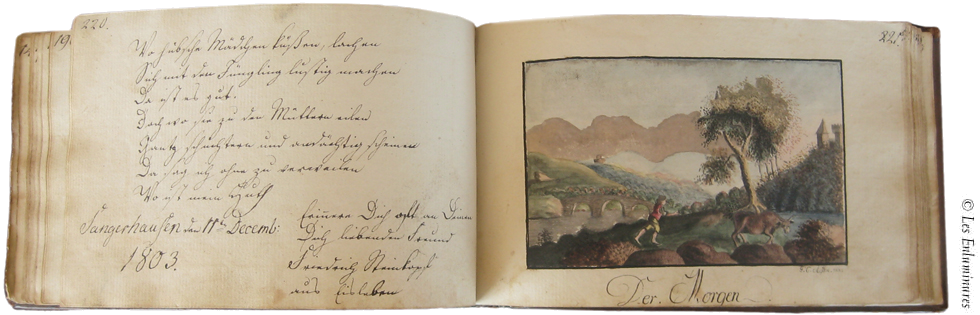 220.
Wo hübsche Mädchen küßen, lachen
Sich mit den Jüngling lustig machen
Da ist es gut.
Doch wo sie zu den Müttern eilen
Gantz schüchtern und andächtig scheinen
Da sag ich, ohne zu verweilen
Wo ist mein Huth
Sangerhausen den 11t Decemb:
1803.
Erinnere Dich oft an Deinen
Dich liebenden Freund
Friedrich Steinkopf
aus Eisleben
19
221.
Der Morgen
© Les Enluminures